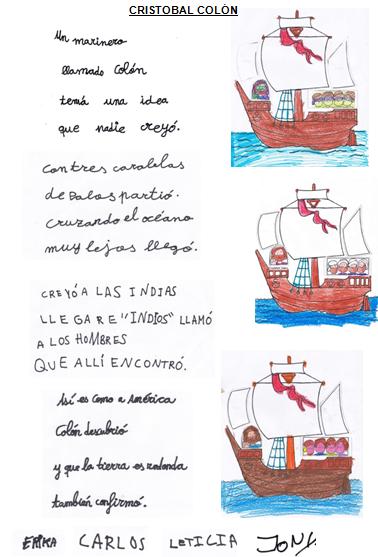 CRISTOBAL COLÓN
Un marinero
llamado Colón
temá una idea
que nadie creyó.
Con tres carabelas
de Palos partió.
Cruzando el océano
muy lejos llegó.
CREYÓ A LAS INDIAS
LLEGAR E "INDIOS" LLAMÓ
A LOS HOMBRES
QUE ALLÍ ENCONTRÓ.
Así es como a América
Colón descubrió
y que la tierra es redonda
también confirmó.
ERIKA CARLOS LETICIA JONY